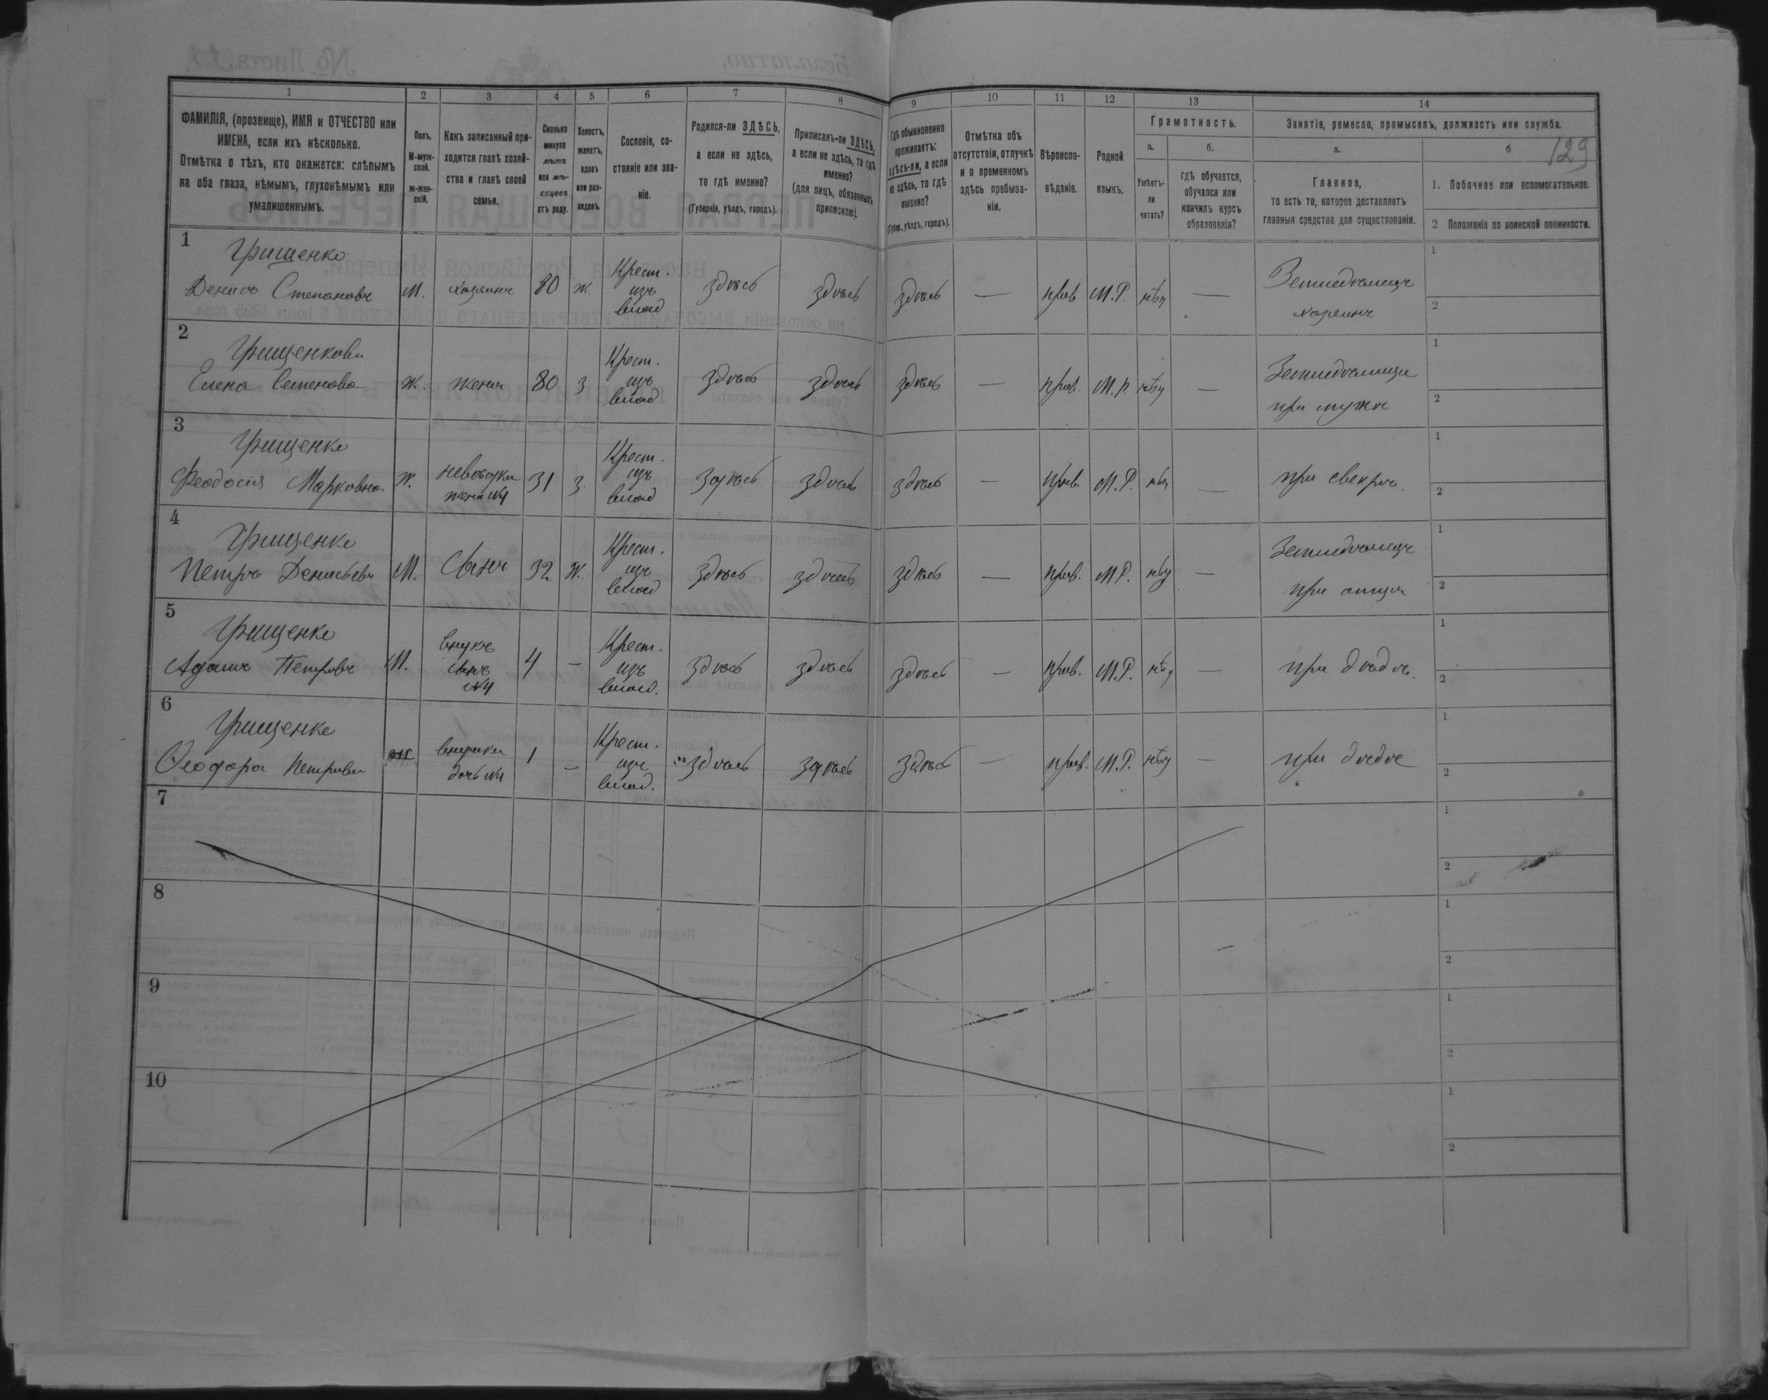 1 2 3 4 5 6 7 8 9 10 11 12 13 14
ФАМИЛІЯ, (прозвище), ИМЯ и ОТЧЕСТВО или
ИМЕНА, если ихъ нѣсколько.
Отмѣтка о тѣхъ, кто окажется: слѣпымъ
на оба глаза, нѣмымъ, глухонѣмымъ или
умалишеннымъ.
Полъ.
М-муж-
ской.
Ж-жен-
скій.
Какъ записанный при-
ходится главѣ хозяй-
ства и главѣ своей
семьи.
Сколько
минуло
лѣтъ
или мѣ-
сяцевъ
отъ роду.
Холостъ,
женатъ,
вдовъ
или раз-
веденъ.
Сословіе, со-
стояніе или зва-
ніе.
Родился-ли ЗДѢСЬ,
а если не здѣсь,
то гдѣ именно?
(Губернія, уѣздъ, городъ).
Приписанъ-ли ЗДѢСЬ,
а если не здѣсь, то гдѣ
именно?
(для лицъ, обязанныхъ
припискою).
Гдѣ обыкновенно
проживаетъ:
здѣсь-ли, а если
не здѣсь, то гдѣ
именно?
(Губер., уѣздъ, городъ).
Отмѣтка объ
отсутствіи, отлучкѣ
и о временномъ
здѣсь пребыва-
ніи.
Вѣроиспо-
вѣданіе.
Родной
языкъ.
Грамотность.
а.
Умѣетъ-
ли
читать?
б.
Гдѣ обучается,
обучался или
кончилъ курсъ
образованія?
Занятіе, ремесло, промыселъ, должность или служба.
а.
Главное,
то есть то, которое доставляетъ
главныя средства для существованія.
б 129
1. Побочное или вспомогательное.
2 Положеніе по воинской повинности.
1
Грищенко
Денисъ Степановъ М. хозяинъ 80 ж. Крест. изъ влад здѣсь здѣсь здѣсь — прав М.Р. нѣтъ — Земледѣлецъ хозяинъ
1
2
2
Грищенкова
Елена Семенова Ж. жена 80 з Крест. изъ влад здѣсь здѣсь здѣсь — прав. М.р нѣтъ — Земледѣлица при мужѣ
1
2
3
Грищенко
Феодосия Марковна Ж. невѣстка жена №4 31 з. Крест. изъ влад здѣсь здѣсь здѣсь — прав. М.Р. нѣтъ — при свекрѣ.
1
2
4
Грищенко
Петръ Денисьевъ М. Сынъ 32 Ж. Крест. изъ влад здѣсь здѣсь здѣсь — прав. М.Р. нѣтъ — Земледѣлецъ при отцѣ
1
2
5
Грищенко
Адамъ Петровъ М. внукъ сынъ №4 4 — Крест. изъ влад. здѣсь здѣсь здѣсь — прав. М.Р. нѣтъ — при дѣдѣ.
1
2
6
Грищенко
Феодора Петрова внучка дочь №4 1 — Крест. изъ влад. здѣсь здѣсь здѣсь — прав. М.Р. нѣтъ — при дѣдѣ
1
2
7
1
2
8
1
2
9
1
2
10
1
2